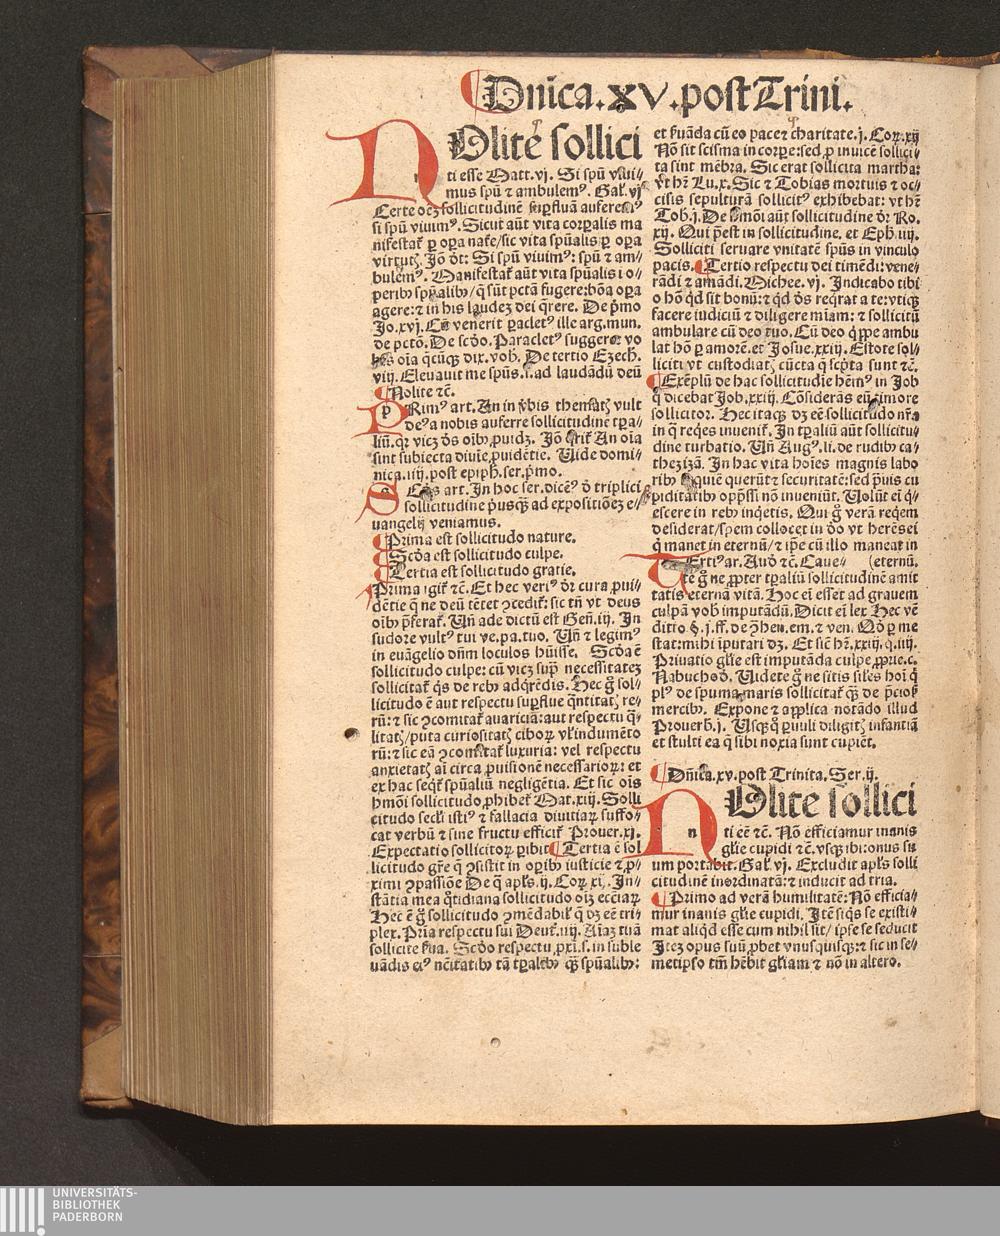 ¶ Dn̄ica.xv.post Trini.
NOlite sollici
ti esse Matt.vj. Si spū viui⸗
mus spū ⁊ ambulemꝰ. Gal. vj
si spū viuimꝰ. Sicut aūt vita corꝑalis ma
nifestat᷑ ꝑ oꝑa nat᷑e/sic vita spūalis ꝑ oꝑa
Jō dt: Si spū viuimꝰ: spū ⁊ am⸗
bulemꝰ. Manifestat᷑ aūt vita spūalis i o⸗
agere: ⁊ in his laudez dei q̄rere. De p̄mo
Jo.xvj. venerit ꝑacletꝰ ille arg.mun.
de pctō. De scd̓o. Paracletꝰ suggeret vo
oīa q̄cūqꝫ dix.vob̓. De tertio Ezech.
viij. Eleuauit me spūs.i.ad laudādū deū
¶ Nolite ⁊c̄.
PRimꝰ art. An in v̓bis themat̄ vult
deꝰ a nobis auferre sollicitudinē tꝑa⸗
An oīa
sint subiecta diuīe ꝓuidētie. Uide domi⸗
nica.iiij.post epiph̓.ser.p̄mo.
art. In hoc ser.dicēꝰ d̓ triplici
sollicitudine p̓usqꝫ ad expositiōez e⸗
uangelij veniamus.
¶ Prima est sollicitudo nature.
¶ Scd̓a est sollicitudo culpe.
¶ Tertia est sollicitudo gratie.
Prima igit᷑ ⁊c̄. Et hec veriꝰ dr̄ cura ꝓui⸗
dētie q̄ ne deū tētet ꝯcedit᷑: sic tn̄ vt deus
oib̓ p̄ferat᷑. Un̄ ade dictū est Gen̄.iij. In
sudore vultꝰ tui ve.pa.tuo. Un̄ ⁊ legimꝰ
in euāgelio dn̄m loculos hūisse. Scd̓a ē
sollicitudo culpe: cū vicz sup̄ necessitatez
sollicitat᷑ q̄s de reb̓ adq̄rēdis. Hec g̊ sol⸗
licitudo ē aut respectu suꝑflue q̄ntitat̄ re⸗
rū: ⁊ sic ꝯcomitat᷑ auariciā: aut respectu q̄⸗
litat̄/puta curiositat̄ ciboꝝ vl̓ indumēto
rū: ⁊ sic eā ꝯcomitat᷑ luxuria: vel respectu
anxietat̄ ai circa ꝓuisionē necessarioꝝ: et
ex hac seqt᷑ spūaliū negligētia. Et sic oīs
hmōi sollicitudo ꝓhibet᷑ Mat.xiij. Solli
citudo secl̓i istiꝰ ⁊ fallacia diuitiaꝝ suffo⸗
cat verbū ⁊ sine fructu efficit᷑ Prouer.xj.
Expectatio sollicitoꝝ ꝑibit ¶ Tertia ē sol
licitudo gr̄e q̄ ꝯsistit in oꝑib̓ iusticie ⁊ ꝓ⸗
ximi ꝯpassiōe De q̄ apl̓s.ij. Coꝝ.xj. In⸗
stātia mea q̄tidiana sollicitudo oīz eccīaꝝ
Hec ē g̊ sollicitudo ꝯmēdabil̓ q̄ dz eē tri⸗
plex. Pria respectu sui Deut̄.iiij. Aīaz tuā
sollicite s̓ua. Scd̓o respectu ꝓxi.s.in suble
uādis eiꝰ nēcitatib̓ tā tꝑalib̓ qꝫ spūalib̓:
et s̓uāda cū eo pace ⁊ charitate.j. Coꝝ.xij
Nō sit scisma in corꝑe: sed ꝓ inuicē sollici⸗
ta sint mēbra. Sic erat sollicita martha:
vt hr̄ Lu.x. Sic ⁊ Tobias mortuis ⁊ oc⸗
cisis sepulturā sollicitꝰ exhibebat: vt hr̄
Tob.j. De hmōi aūt sollicitudine dr̄ Ro.
xij. Qui p̄est in sollicitudine. et Eph.iiij.
Solliciti seruare vnitatē spūs in vinculo
pacis. ¶ Tertio respectu dei timēdi: vene⸗
rādi ⁊ amādi. Michee.vj. Indicabo tibi
o hō qd̓ sit bonū: ⁊ qd̓ dn̄s reqrat a te: vtiqꝫ
facere iudiciū ⁊ diligere mīam: ⁊ sollicitū
ambulare cū deo tuo. Cū deo q̄ppe ambu
lat hō ꝑ amorē. et Josue.xxiij. Estote sol⸗
liciti vt custodiat̄ cūcta q̄ scpta sunt ⁊c̄.
¶ Exēplū de hac sollicitudīe hēmꝰ in Job
q̄ dicebat Job.xxiij. Cōsiderās eū timore
sollicitor. Hec itaqꝫ dz eē sollicitudo nr̄a
in q̄ reqes inuenit᷑. In tꝑaliū aūt sollicitu⸗
dine turbatio. Un̄ Augꝰ.li.de rudib̓ ca⸗
thezizā. In hac vita hoīes magnis labo
rib̓ quiē querūt ⁊ securitatē: sed p̓uis cu
piditatib̓ opp̄ssi nō inueniūt. Uolūt ei q̄⸗
escere in reb̓ inqetis. Qui g̊ verā reqem
desiderat/spem collocet in dō vt hereat ei
q̄ manet in eternū/⁊ ip̄e cū illo maneat in
TErtiꝰ ar. Aud̓ ⁊c̄. Caue⸗ (eternū.
te g̊ ne ꝓpter tꝑaliū sollicitudinē amit
tatis eternā vitā. Hoc ei esset ad grauem
culpā vob̓ imputādū. Dicit ei lex Hec vē
ditio §.j.ff.de ꝯhen.em.⁊ ven. Qd̓ ꝑ me
stat: mihi īputari dz. Et sic hr̄.xxiij.q.iiij.
Priuatio gl̓ie est imputāda culpe ꝓprie.c.
Nabuchod̓. Uidete g̊ ne sitis siles hoi q̄
plꝰ de spuma maris sollicitat᷑ qꝫ de p̄cios̓
mercib̓. Expone ⁊ applica notādo illud
Prouerb̓.j. Usqꝫq̊ ꝑuuli diligit̄ infantiā
et stulti ea q̄ sibi noxia sunt cupiēt.
¶ Dn̄ica.xv.post Trinita. Ser.ij.
NOlite sollici
ti eē ⁊c̄. Nō efficiamur inanis
gl̓ie cupidi ⁊c̄.vsqꝫ ibi: onus su
um portabit. Gal̓.vj. Excludit apl̓s solli
citudinē inordinatā: ⁊ inducit ad tria.
¶ Primo ad verā humilitatē: Nō efficia⸗
mur inanis gl̓ie cupidi. Jtē siqs se existi⸗
mat aliqd̓ esse cum nihil sit/ipse se seducit
Jtez opus suū ꝓbet vnusquisqꝫ: ⁊ sic in se⸗
metipso tm̄ hēbit gl̓iam ⁊ nō in altero.
UNIVERSITÄTS-
BIBLIOTHEK
PADERBORN